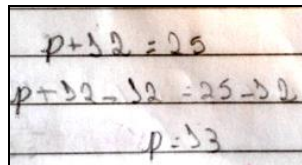 p+12 = 25
p+12-12 = 25-12
p=13